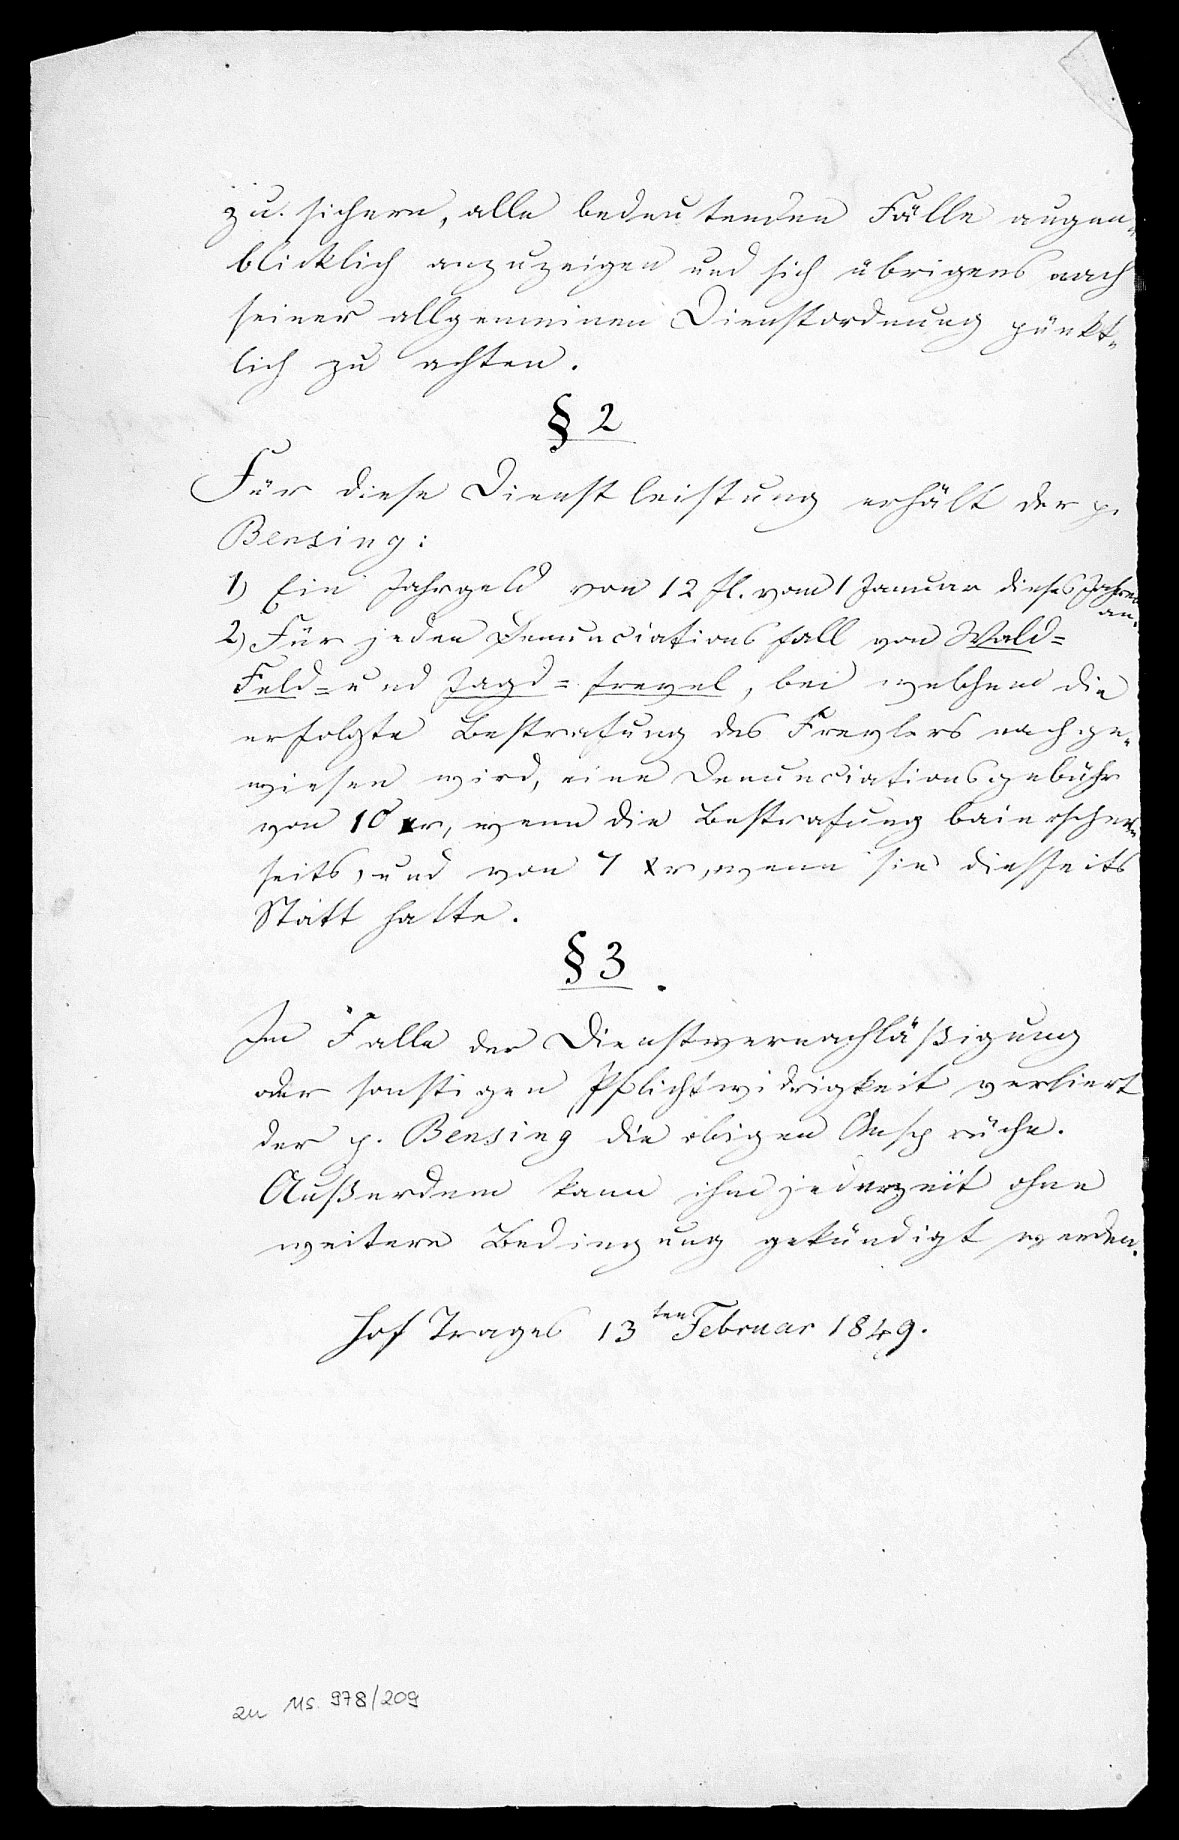 zu sichern, alle bedeutenden Fälle augen-
blicklich anzuzeigen und sich übrigens nach
seiner allgemeinen Dienstordnung pünkt-
lich zu achten.
§ 2
Für diese Dienstleistung erhält der p.
Bensing:
1) Ein Jahrgeld von 12 fl. vom 1 Januar dieses Jahres
an.
2) Für jeden Denunciationsfall von Wald=
Feld= und Jagd=frevel, bei welchem die
erfolgte Bestrafung des Frevlers nachge-
wiesen wird, eine Denunciationsgebühr
von 10 xr, wenn die Bestrafung baierscher-
seits, und von 7 xr, wenn sie diesseits
Statt hatte.
§ 3.
Im Falle der Dienstvernachläßigung
oder sonstigen Pflichtwidrigkeit verliert
der p. Bensing die obigen Ansprüche.
Außerdem kann ihm jederzeit ohne
weitere Bedingung gekündigt werden.
Hof Trages 13ten Februar 1849.
zu Ms. 978/209